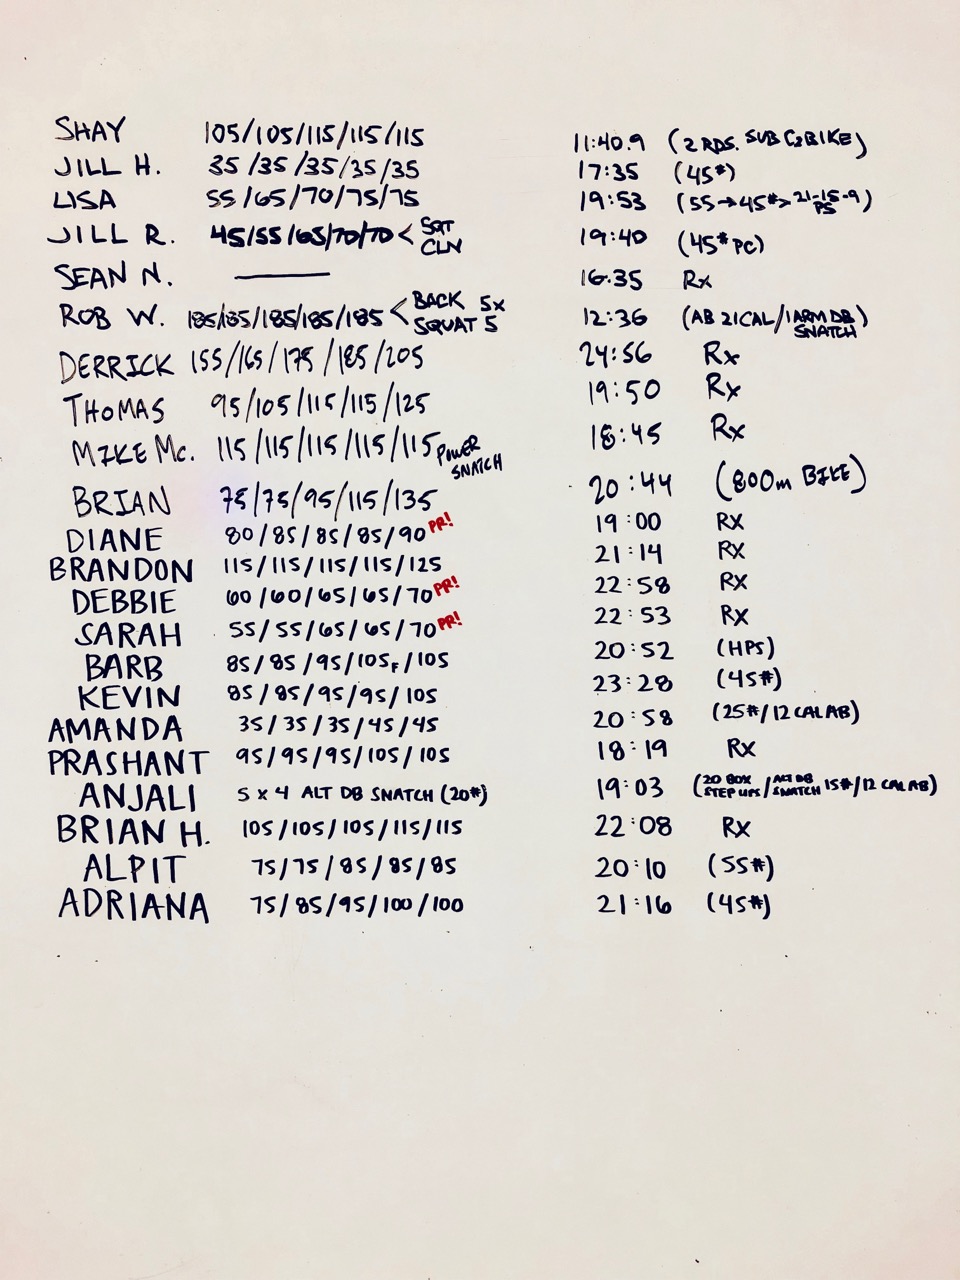 SHAY 105/105/115/115/115 11:40.9 (2 RDS. SUB C2BIKE)
JILL H. 35/35/35/35/35 17:35 (45#)
LISA 55/65/70/75/75 19:53 (55→45#> 21-15-9 PS)
JILL R. 45/55/65/70/70 < SQT CLN 19:40 (45# PC)
SEAN N. — 16:35 Rx
ROB W. 185/185/185/185/185 < BACK SQUAT 5x5 12:36 (AB 21CAL/1ARM DB SNATCH)
DERRICK 155/165/175/185/205 24:56 Rx
THOMAS 95/105/115/115/125 19:50 Rx
MIKE Mc. 115/115/115/115/115 POWER SNATCH 18:45 Rx
BRIAN 75/75/95/115/135 20:44 (800m BIKE)
DIANE 80/85/85/85/90 PR! 19:00 RX
BRANDON 115/115/115/115/125 21:14 RX
DEBBIE 60/60/65/65/70 PR! 22:58 RX
SARAH 55/55/65/65/70 PR! 22:53 RX
BARB 85/85/95/105F/105 20:52 (HPS)
KEVIN 85/85/95/95/105 23:28 (45#)
AMANDA 35/35/35/45/45 20:58 (25#/12 CAL AB)
PRASHANT 95/95/95/105/105 18:19 RX
ANJALI 5 x 4 ALT DB SNATCH (20#) 19:03 (20 BOX STEP UPS/ALT DB SNATCH 15#/12 CAL AB)
BRIAN H. 105/105/105/115/115 22:08 RX
ALPIT 75/75/85/85/85 20:10 (55#)
ADRIANA 75/85/95/100/100 21:16 (45#)